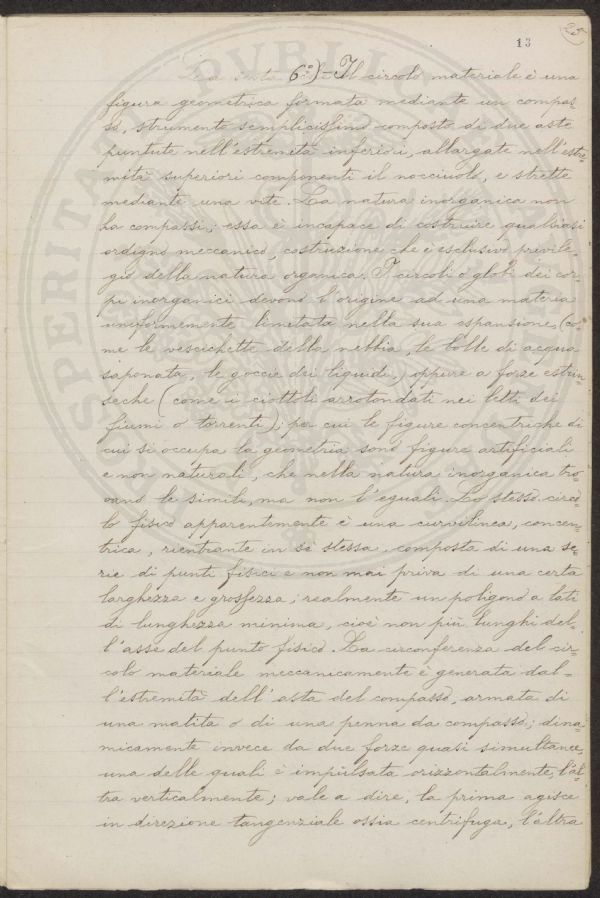 13
25
6°.) – Il circolo materiale è una
figura geometrica firmata mediante un compas-
so, strumento semplicissimo composto di due aste
puntute nell'estremità inferiori, allargate nell'estre-
mità superiori componenti il nocciuolo, e strette
mediante una vite. La natura inorganica non
ha compassi; essa è incapace di costruire qualsiasi
ordigno meccanico, costruzione che è esclusivo privile-
gio della natura organica. I circoli o globi dei cor-
pi inorganici devono l'origine ad una materia
uniformemente limitata nella sua espansione, (co-
me le vescichette della nebbia, le bolle di acqua
saponata, le goccie dei liquidi,) oppure a forze estrin-
seche (come i ciottoli arrotondati nei letti dei
fiumi o torrenti); per cui le figure concentriche di
cui si occupa la geometria sono figure artificiali
e non naturali, che nella natura inorganica tro-
vano le simili, ma non l'eguali. Lo stesso circo-
lo fisico apparentemente è una curvilinea, concen-
trica, rientrante in sè stessa, composta di una se-
rie di punti fisici e non mai priva di una certa
larghezza e grossezza; realmente un poligono a lati
di lunghezza minima, cioè non più lunghi del-
l'asse del punto fisico. La circonferenza del cir-
colo materiale meccanicamente è generata dal-
l'estremità dell'asta del compasso, armata di
una matita o di una penna da compasso; dina-
micamente invece da due forze quasi simultanee,
una delle quali è impulsata orizzontalmente, l'al-
tra verticalmente; vale a dire, la prima agisce
in direzione tangenziale ossia centrifuga, l'altra